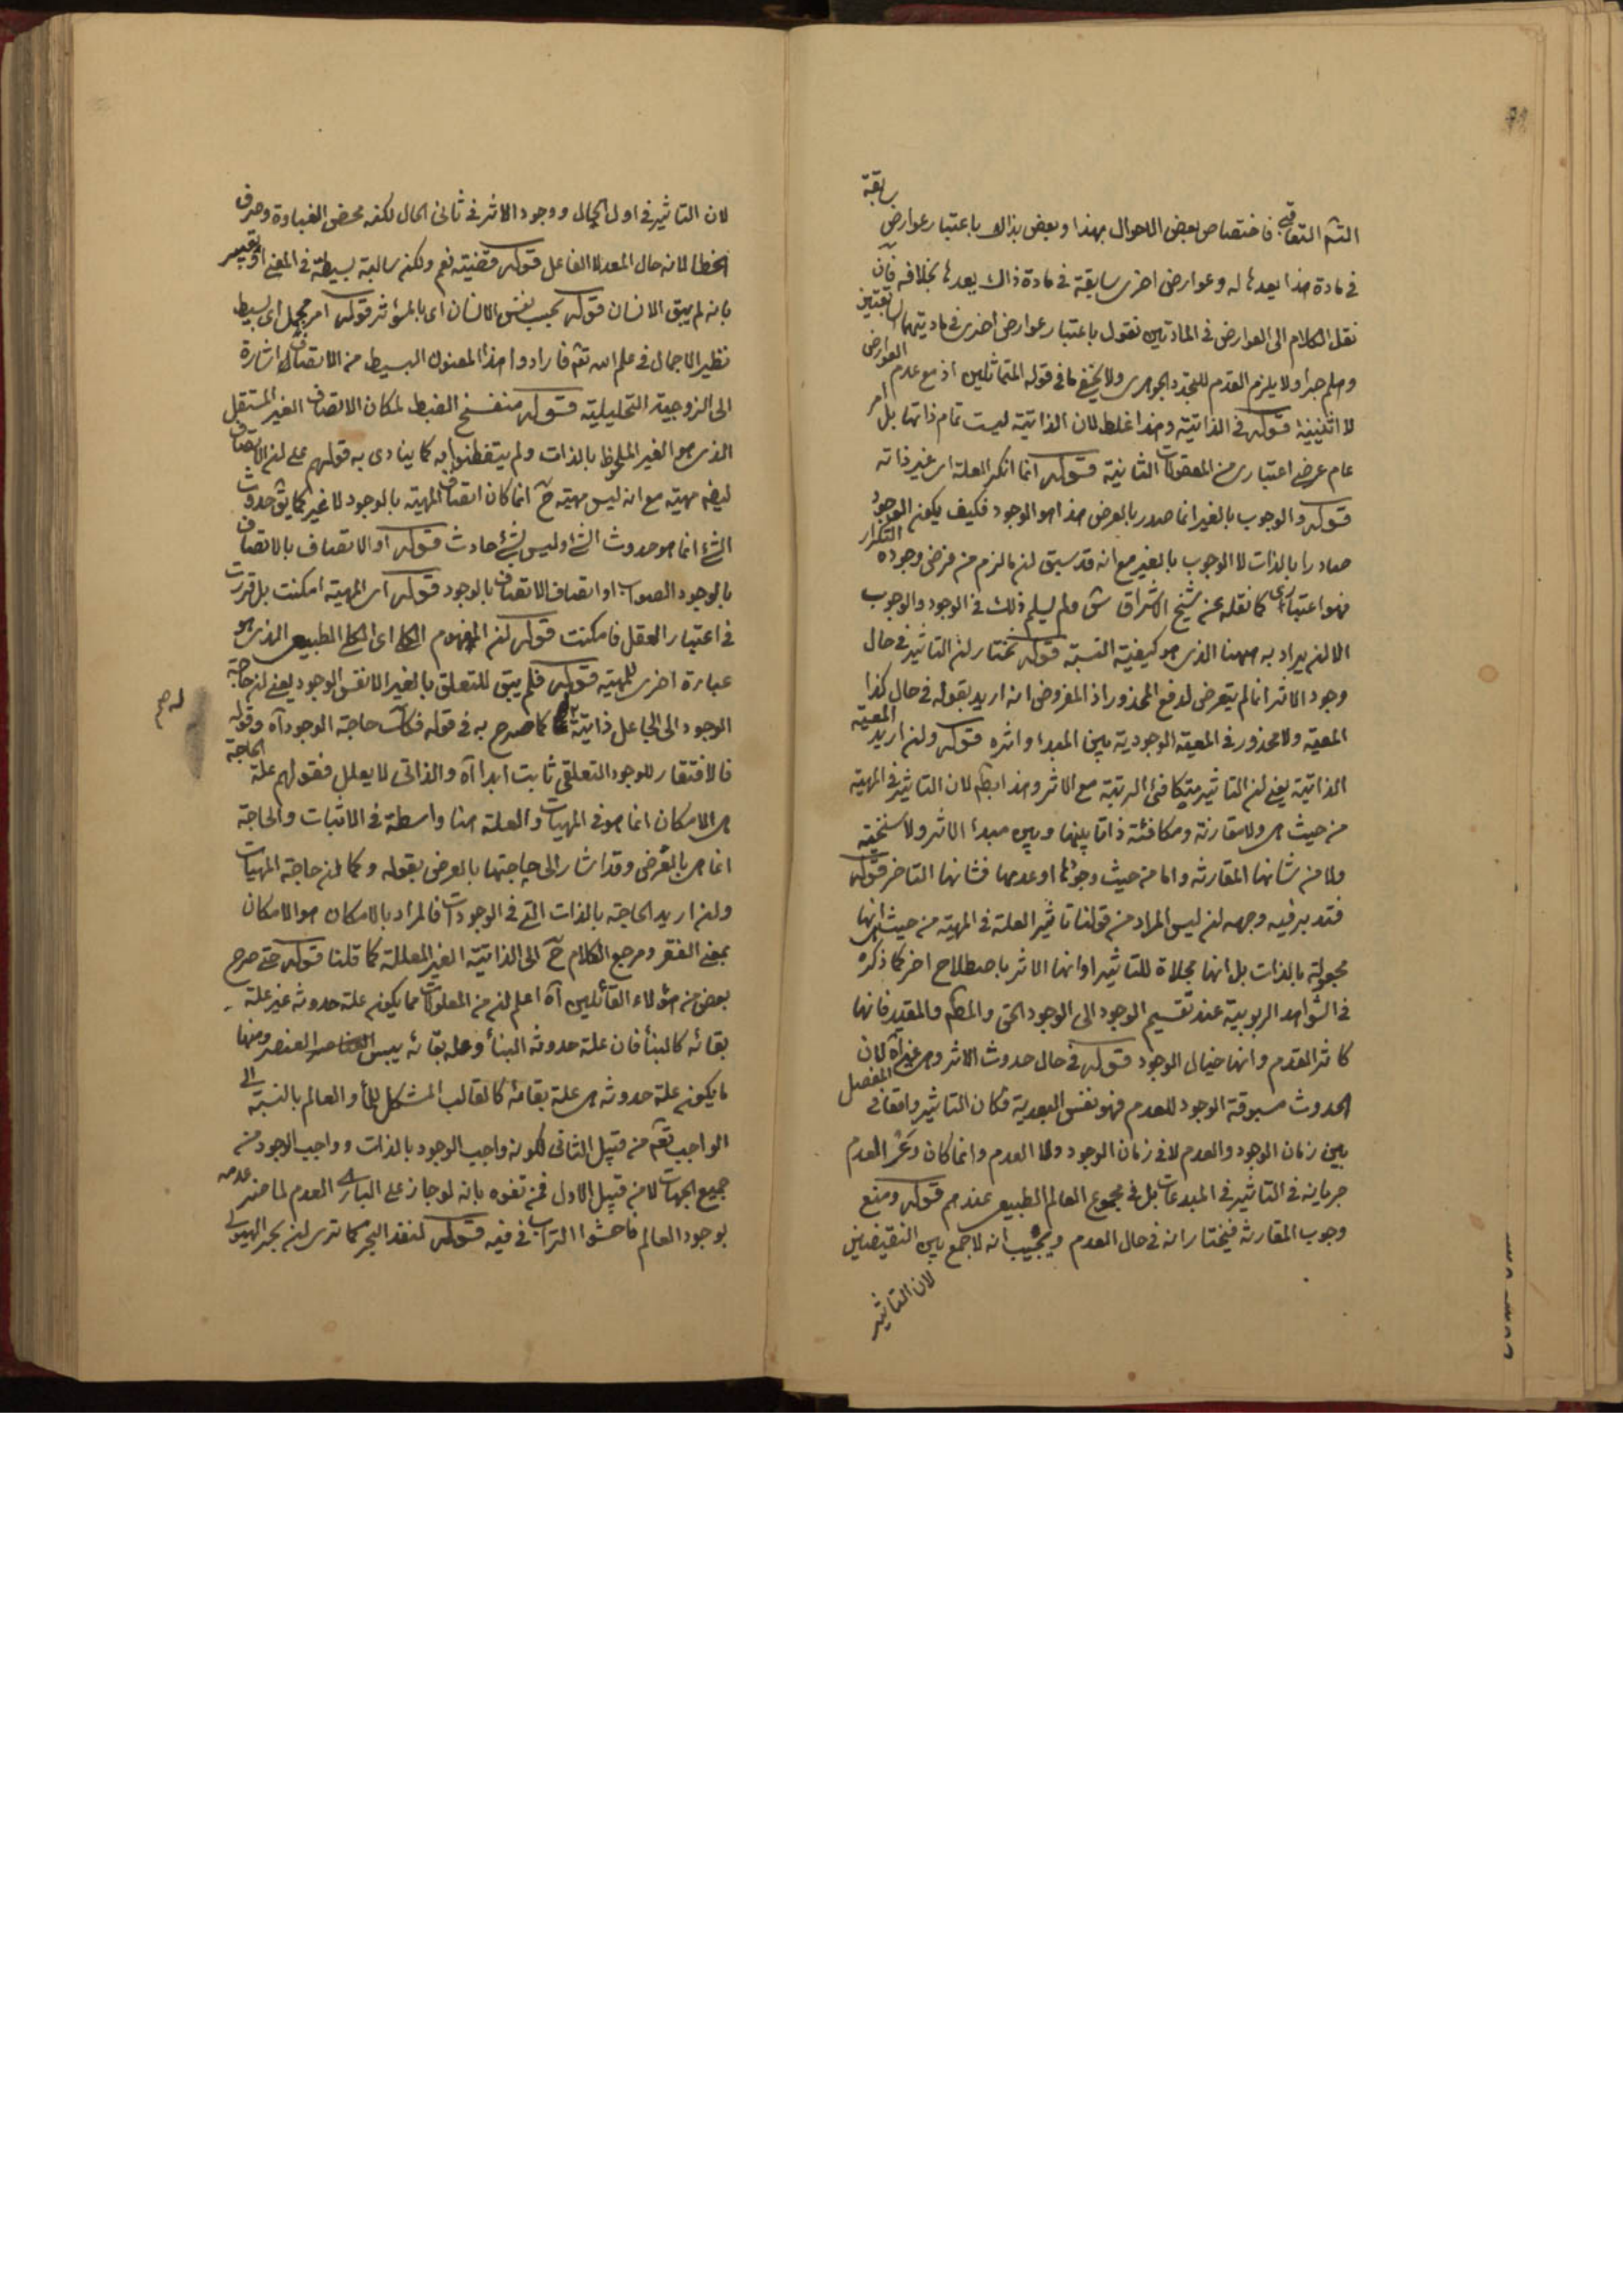 سابقة
التئم التعاقبى فاختصاص بعض الاحوال بهذا وبعض بذاك باعتبار عوارض
فى مادة هذا يعدها له وعوارض اخرى سابقة فى مادة ذاك يعدها بخلافه فان
نقل الكلام الى العوارض فى المادتين نقول باعتبار عوارض اخرى فى مادتيهما سابقتين
وهلم جرا ولا يلزم القدم للتجدد الجوهرى ولا يخفى ما فى قوله المتماثلين اذ مع عدم العوارض
لا اثنينية قوله فى الذاتية وهذا غلط لان الذاتية ليست تمام ذاتها بل امر
عام عرضى اعتبارى من المعقولات الثانية قوله انما انكر العلة اى غير ذاته
قوله والوجوب بالغير انما صدر بالعرض هذا هو الوجود فكيف يكون الوجود
صادرا بالذات لا الوجوب بالغير مع انه قد سبق ان ما لزم من فرض وجوده التكرار
فهو اعتبارى كما نقله عن شيخ الاشراق ش ولم يسلم ذلك فى الوجود والوجوب
الا ان يراد به ههنا الذى هو كيفية النسبة قوله نختار ان التاثير فى حال
وجود الاثر انما لم يتعرض لدفع المحذور اذ المفروض انه اريد بقوله فى حال كذا
المعية ولا محذور فى المعية الوجودية بين المبدا واثره قوله وان اريد المعية
الذاتية يعنى ان التاثير متكافئ الرتبة مع الاثر وهذا ابطله لان التاثير فى المهية
من حيث هى ولا مقارنة ومكافئة ذاتا بينها وبين مبدأ الاثر ولا سنخية
ولا من شانها المقارنه واما من حيث وجودها او عدمها فشانها التاخر قوله
فتدبر فيه وجهه ان ليس المراد من قولنا تاثير العلة فى المهية من حيث هى انها
مجعولة بالذات بل انها مجلاة للتاثير او انها الاثر باصطلاح اخر كما ذكره
فى الشواهد الربوبية عند تقسيم الوجود الى الوجود الحق والمطلق والمقيد فانها
كاثر المقدم وانها خيال الوجود قوله فى حال حدوث الاثر وهى غير آه لان
الحدوث مسبوقة الوجود للعدم فهو نفس البعدية فكان التاثير واقعا فى المفصل
بين زمان الوجود والعدم لا فى زمان الوجود ولا العدم وانما كان وعر المعدم
جريانه فى التاثير فى المبدعات بل فى مجموع العالم الطبيعى عندهم قوله ومنع
وجوب المقارنه فيختار انه فى حال العدم ويجيب انه لا جمع بين النقيضين
لان التاثير
لان التاثير فى اول الحال ووجود الاثر فى ثانى الحال لكنه محض الغباوة وصرف
الخطا لانه حال المعد لا الفاعل قوله قضيته نعم ولكن سالبة بسيطة فى المعنى او تفسير
بانه لم يبق الانسان قوله بحسب نفس الانسان اى بالمؤثر قوله امر مجمل اى بسيط
نظير الاجمال فى علم الله تعه فارادوا هذا المعنون البسيط من الاتصاف اشارة
الى الزوجية التحليلية قوله منفسخ الضبط لمكان الاتصاف الغير المستقل
الذى هو الغير الملحوظ بالذات ولم يتفطنوا به كما ينادى به قولهم على ان الاتصاف
ايضه مهية مع انه ليس مهية ح انما كان اتصاف المهية بالوجود لا غير كما يق حدوث
الشئ انما هو حدوث الشئ وليس بشئ حادث قوله او الاتصاف بالاتصاف
بالوجود الصواب او اتصاف الاتصاف بالوجود قوله اى المهية امكنت بل قررت
فى اعتبار العقل فامكنت قوله ان المفهوم الكلى اى الكلى الطبيعى الذى هو
عبارة اخرى للمهية قوله فلم يبق للتعلق بالغير الا نفس الوجود يعنى ان حاجة
الوجود الى الجاعل ذاتية كما صرح به فى قوله فكانت حاجة الوجود آه وقوله
له صم
فالافتقار للوجود التعلقى ثابت ابدا آه والذاتى لا يعلل فقولهم علة الحاجة
هى الامكان انما هو فى المهيات والعلة هنا واسطة فى الاثبات والحاجة
انما هى بالعرض وقد اشار الى حاجتها بالعرض بقوله وكما ان حاجة المهيات
وان اريد الحاجة بالذات التى فى الوجودات فالمراد بالامكان هو الامكان
بمعنى الفقر ومرجع الكلام ح الى الذاتية الغير المعللة كما قلنا قوله حتى صرح
بعض من هؤلاء القائلين آه اعلم ان من المعلولات ما يكون علة حدوثه غير علة
بقائه كالبنأ فان علة حدوثه البنأ وعلة بقائه يبس العنصر ومنها
ما يكون علة حدوثه هى علة بقائه كالقالب المشكل للمأ والعالم بالنسبة الى
الواجب تعه من قبيل الثانى لكونه واجب الوجود بالذات وواجب الوجود من
جميع الجهات لا من قبيل الاول فمن تفوه بانه لو جاز على البارى العدم لما ضر عدمه
بوجود العالم فاحشوا التراب فى فيه قوله لنفد البحر كما ترى ان بحر الهيولى